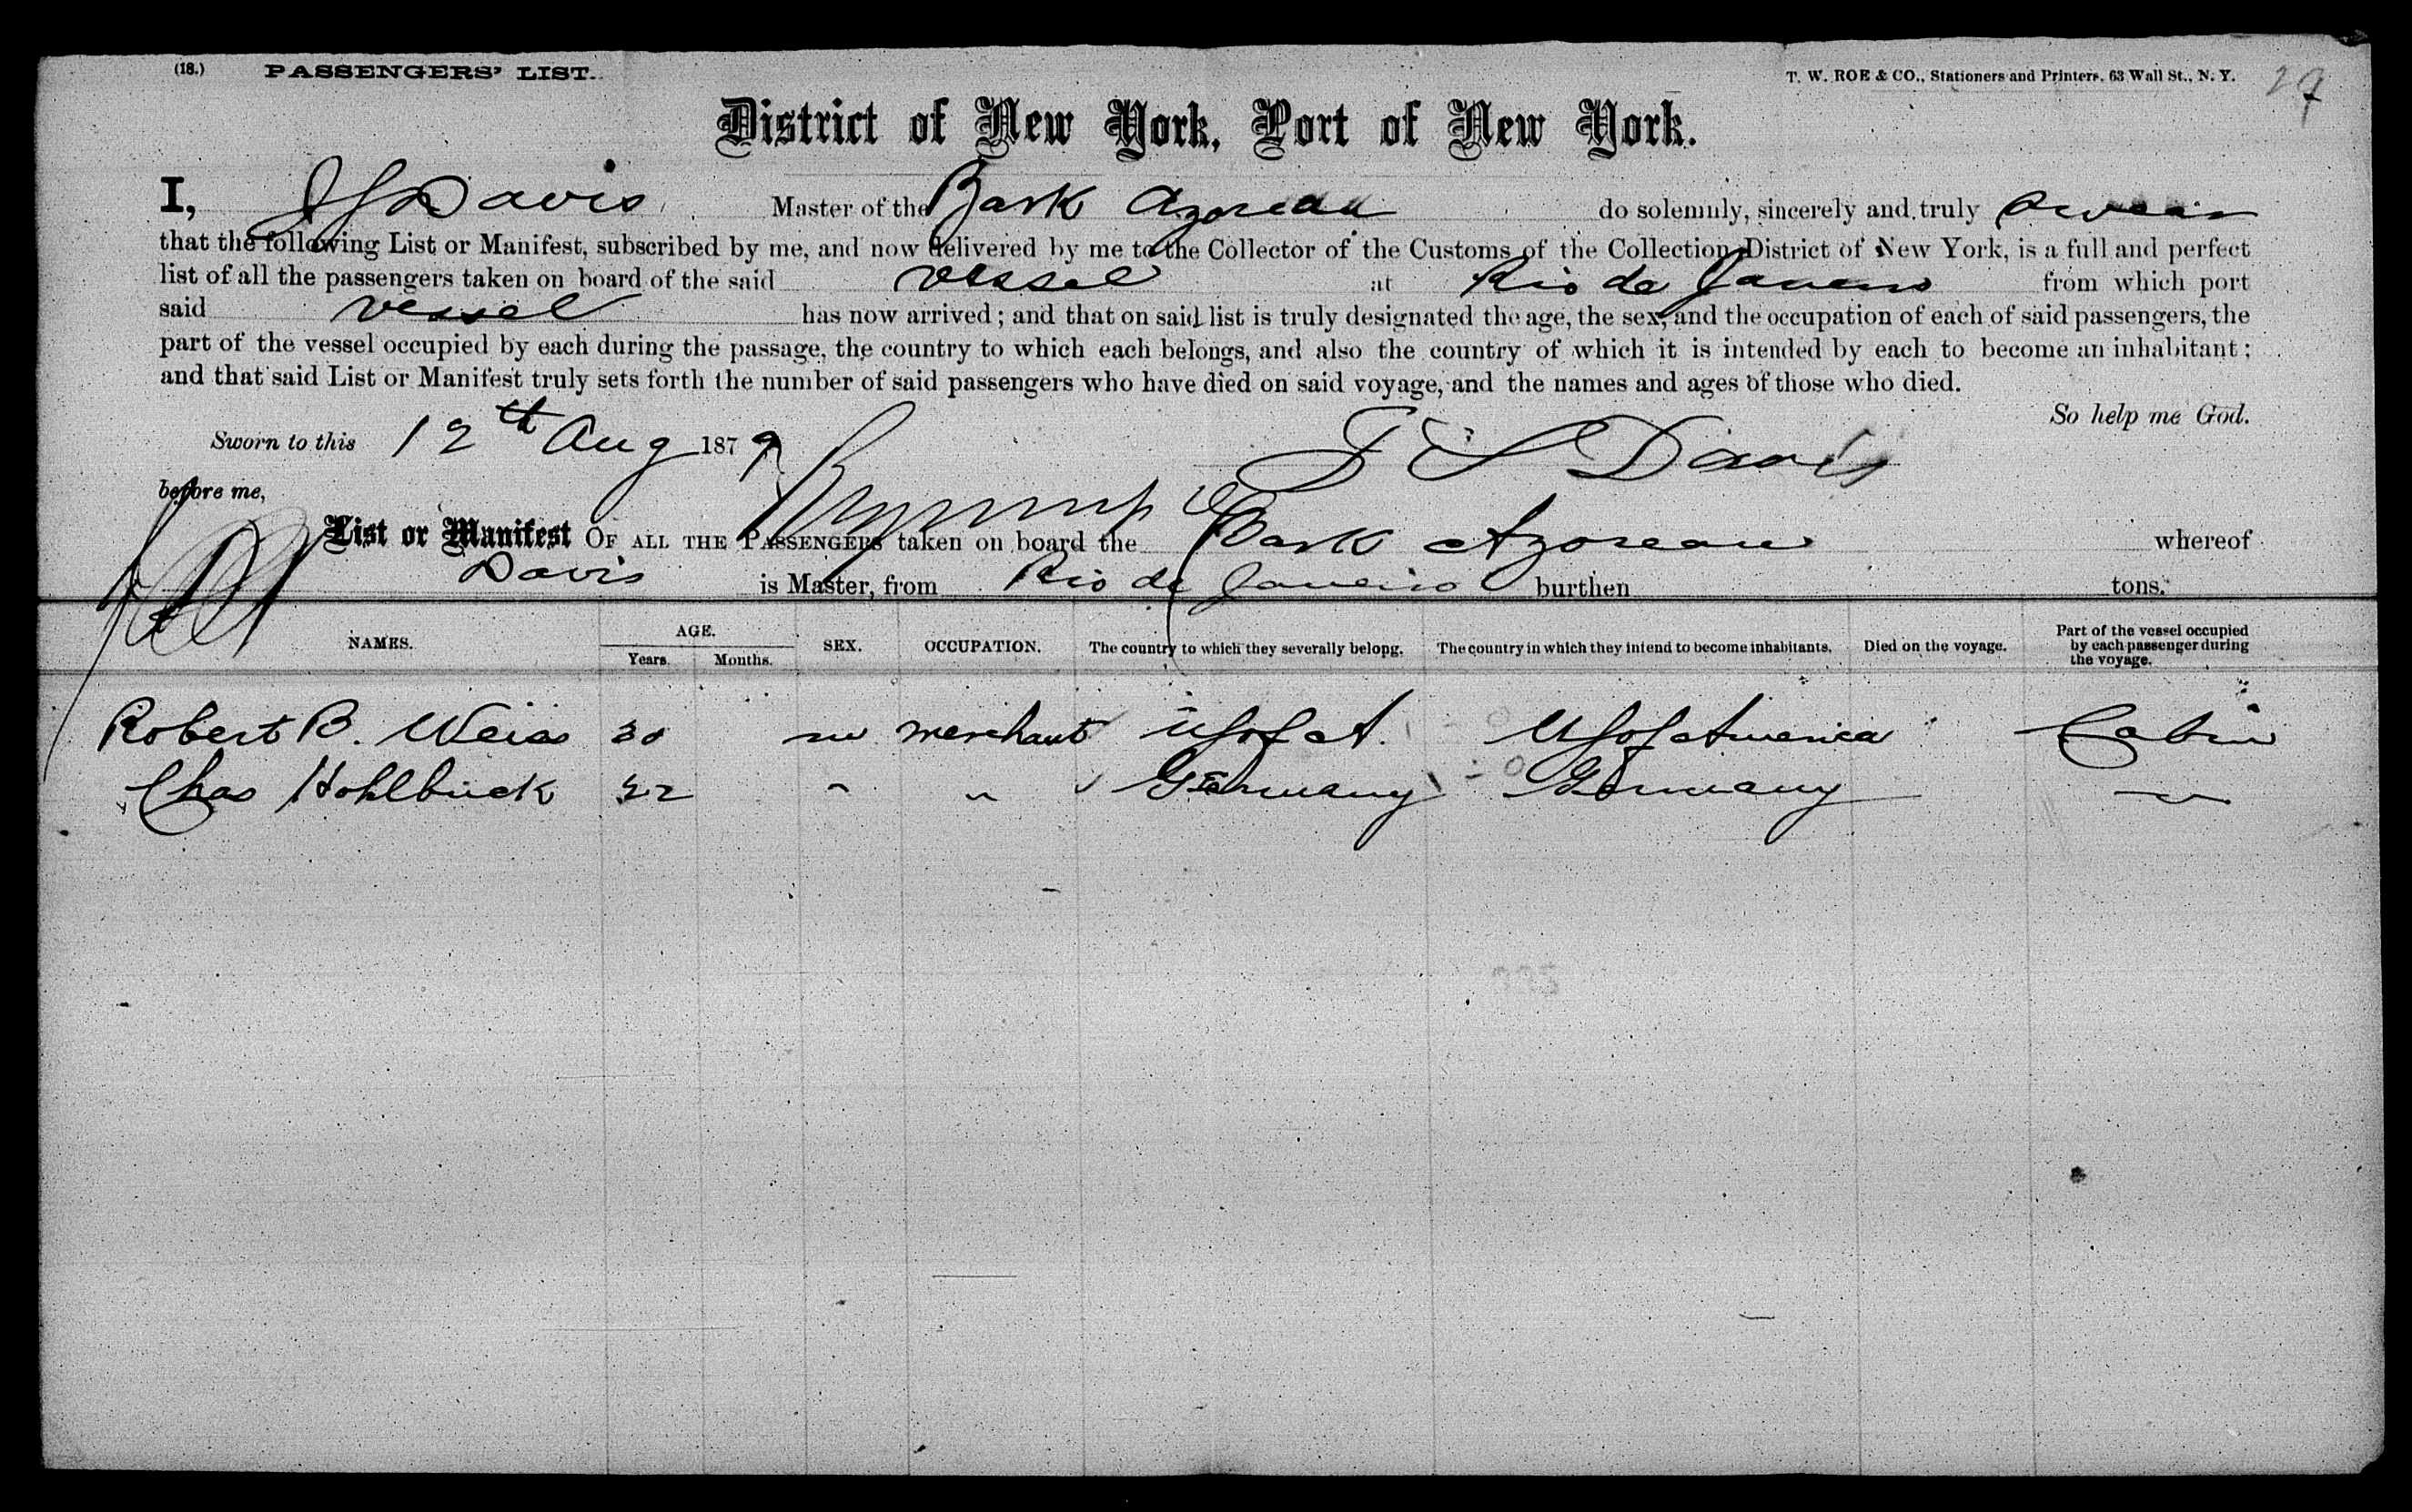 (18.) PASSENGERS' LIST. T. W. ROE & CO., Stationers and Printers, 63 Wall St., N. Y. 29
District of New York, Port of New York.
I, Davis Master of the Bark Azorean do solemnly, sincerely and truly swear
that the following List or Manifest, subscribed by me, and now delivered by me to the Collector of the Customs of the Collection District of New York, is a full and perfect
list of all the passengers taken on board of the said vessel at Rio de Janeiro from which port
said vessel has now arrived; and that on said list is truly designated the age, the sex, and the occupation of each of said passengers, the
part of the vessel occupied by each during the passage, the country to which each belongs, and also the country of which it is intended by each to become an inhabitant;
and that said List or Manifest truly sets forth the number of said passengers who have died on said voyage, and the names and ages of those who died.
So help me God.
Sworn to this 12th Aug 1879 Davis
before me,
List or Manifest OF ALL THE PASSENGERS taken on board the Bark Azorean whereof
Davis is Master, from Rio de Janeiro burthen tons.
NAMES. AGE. Years. Months. SEX. OCCUPATION. The country to which they severally belong. The country in which they intend to become inhabitants. Died on the voyage. Part of the vessel occupied by each passenger during the voyage.
Robert B. Weiss 30 m merchant U S of A. U S of America Cabin
Chas Hohlbuck 22 " " Germany Germany "